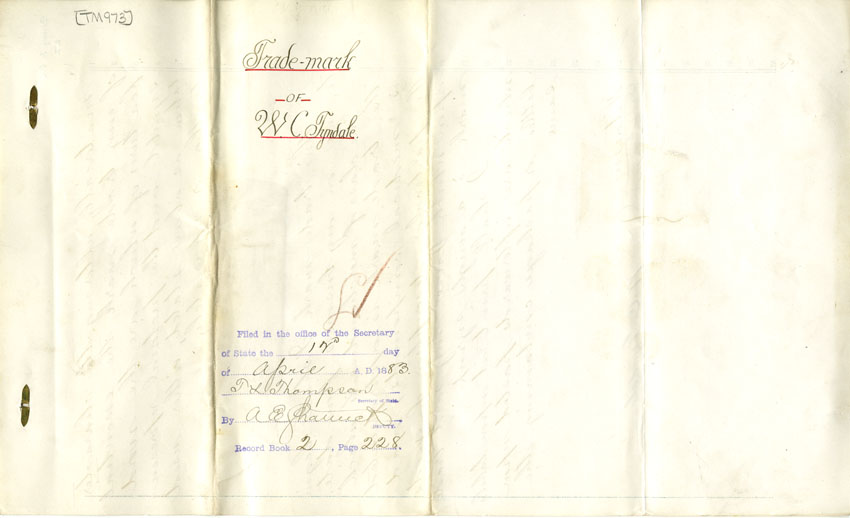 [TM973]
Trade-mark
-OF-
W. C. Tyndale.
Filed in the office of the Secretary
of State the 12 day
of April A. D. 1883.
T L Thompson
Secretary of State.
By A E Shattuck
DEPUTY.
Record Book 2, Page 228.